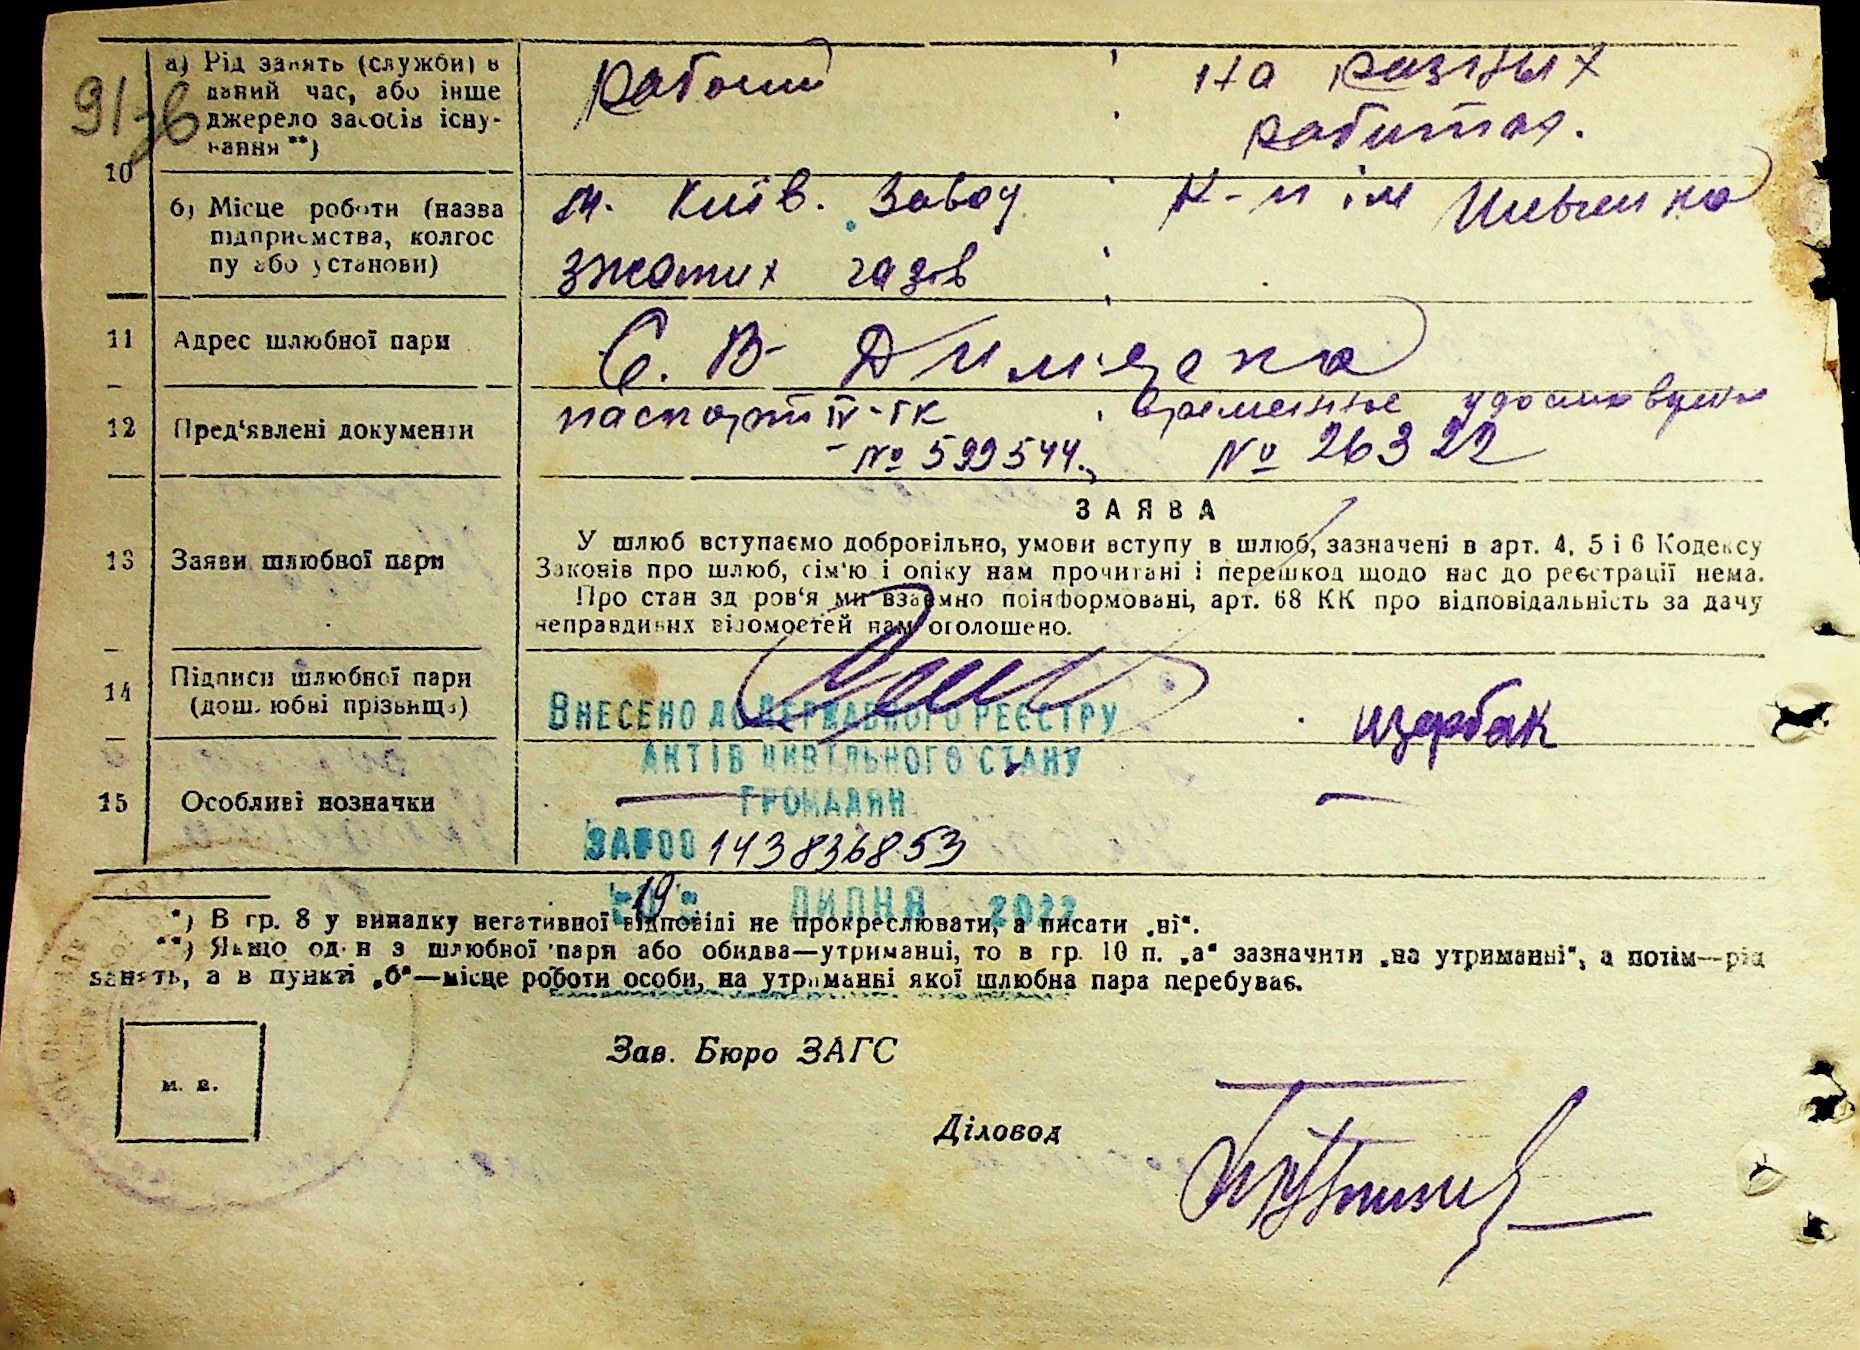 91 зв
10
а) Рід занять (служби) в
даний час, або інше
джерело засобів існу-
вання **)
рабочий
на разных
работах.
б) Місце роботи (назва
підприємства, колгос
пу або установи)
м. Київ. Завод
зжатих газів
к-п ім Шевченка
11 Адрес шлюбної пари
С. В-Димерка
12 Пред'явлені документи
паспорт IV-ГК
- № 599544.
временные удостоверение
№ 26322
13 Заяви шлюбної пари
ЗАЯВА
У шлюб вступаємо добровільно, умови вступу в шлюб, зазначені в арт. 4, 5 і 6 Кодексу
Законів про шлюб, сім'ю і опіку нам прочитані і перешкод щодо нас до реєстрації нема.
Про стан здоров'я ми взаємно поінформовані, арт. 68 КК про відповідальність за дачу
неправдивих відомостей нам оголошено.
14 Підписи шлюбної пари
(дошлюбні прізвища)
щербак
15 Особливі позначки
ВНЕСЕНО ДО ДЕРЖАВНОГО РЕЄСТРУ
АКТІВ ЦИВІЛЬНОГО СТАНУ
ГРОМАДЯН
ЗА №00 143836853
"19" ЛИПНЯ 2022
*) В гр. 8 у випадку негативної відповіді не прокреслювати, а писати „ні".
**) Якщо один з шлюбної пари або обидва—утриманці, то в гр. 10 п. „а" зазначити „на утриманні", а потім—рід
занять, а в пункті „б"—місце роботи особи, на утриманні якої шлюбна пара перебуває.
м. п.
Зав. Бюро ЗАГС
Діловод